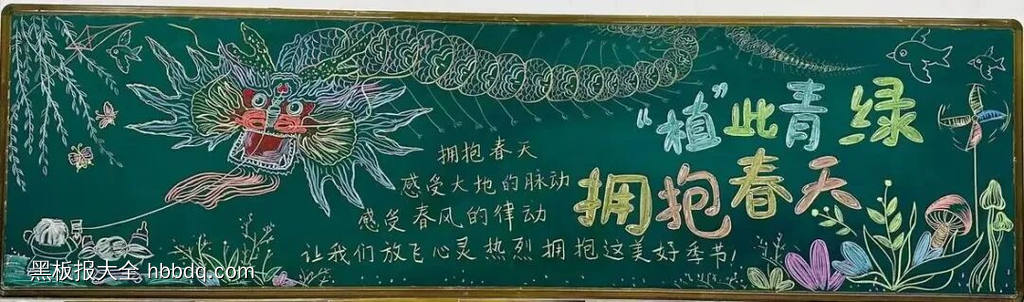 “植”此青绿
拥抱春天
拥抱春天
感受大地的脉动
感受春风的律动
让我们放飞心灵热烈拥抱这美好季节!
黑板报大全 hbbdq.com